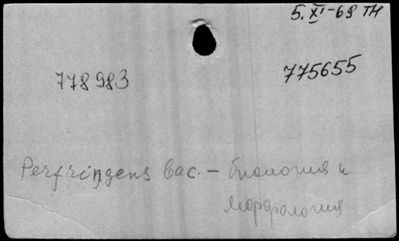 5.XI-68 ТН
778983
775655
Perfringens bac. - биология и
морфология